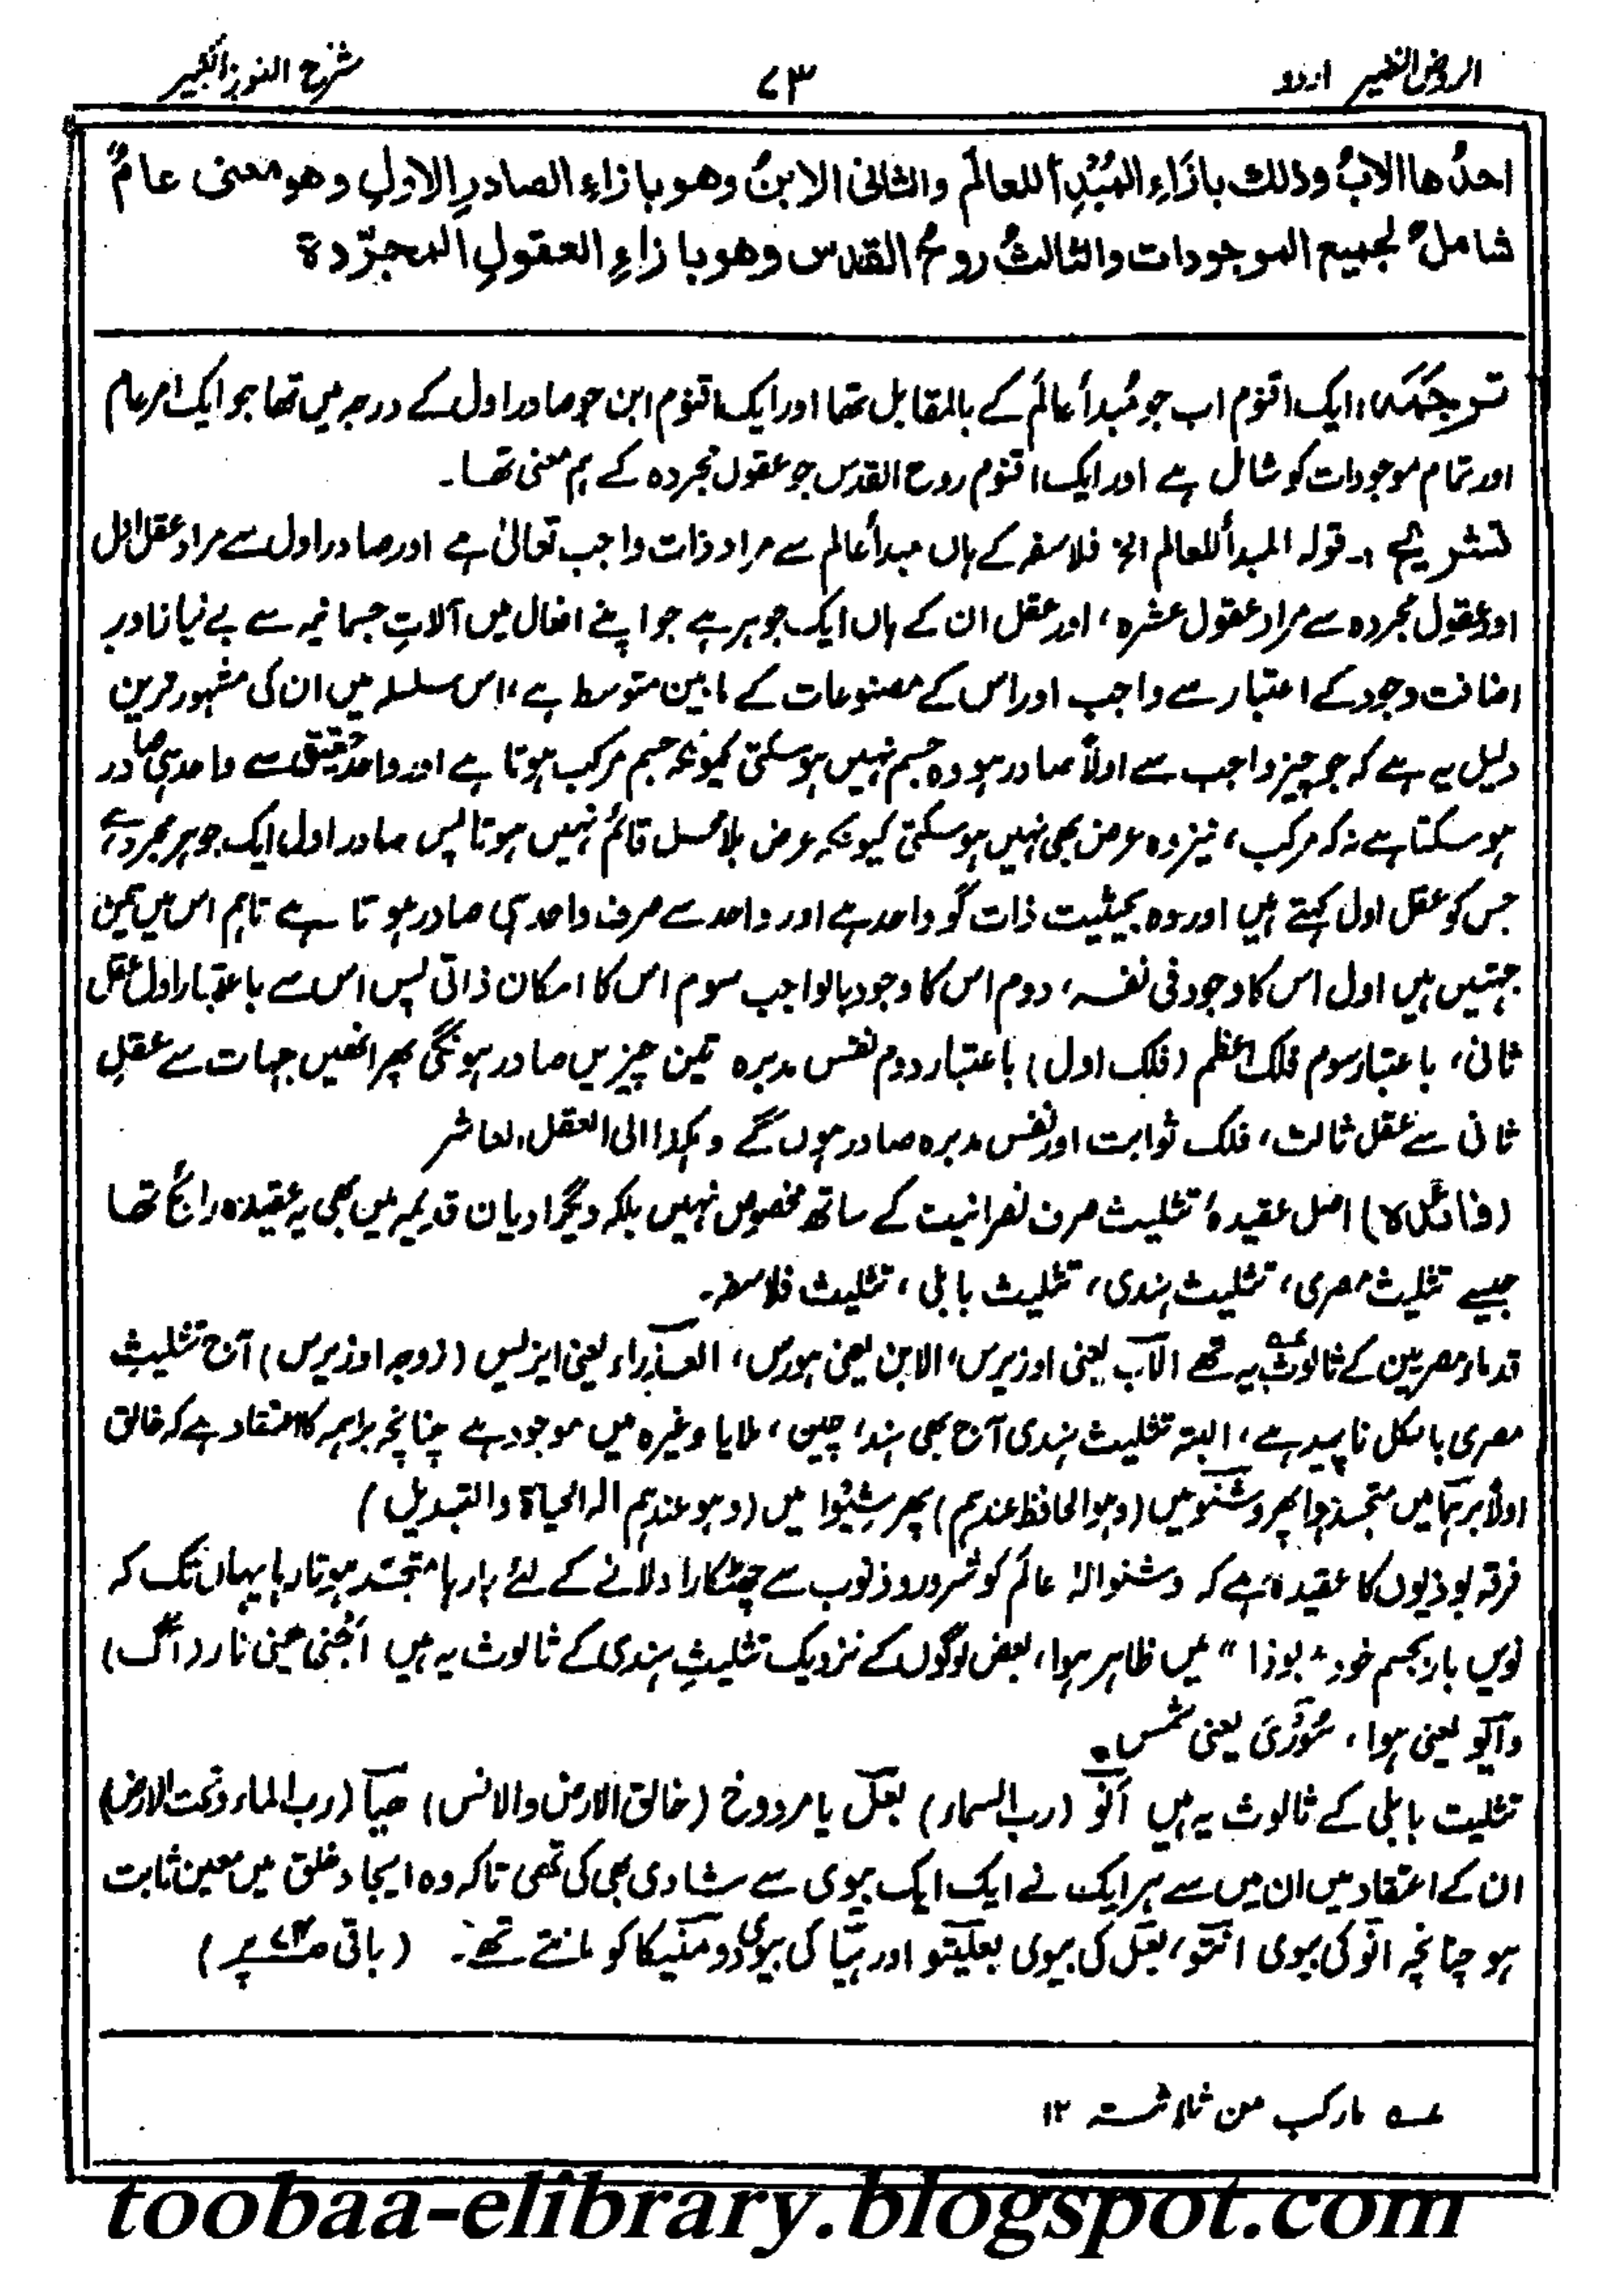 الروض النضیر اردو
۷۳
شرح الفوز الکبیر
احدُها الابُ وذلك بازَاءِ المُبْدِأ للعالَم والثانی الابنُ وهو بازاءِ الصادرِ الاولِ وهو معنی عامٌ
شاملٌ لجمیع الموجودات والثالثُ روحُ القدس وهو بازاءِ العقولِ المجرّدة
ترجَمَہ: ایک اقنوم اب جو مُبدأ عالَم کے بالمقابل تھا اور ایک اقنوم ابن جو صادر اول کے درجہ میں تھا جو ایک امر عام
اور تمام موجودات کو شامل ہے اور ایک اقنوم روح القدس جو عقول مجردہ کے ہم معنی تھا۔
تشریح :۔ قولہ المبدأ للعالم الخ فلاسفہ کے ہاں مبدأ عالم سے مراد ذات واجب تعالیٰ ہے اور صادر اول سے مراد عقل اول
اور عقول مجردہ سے مراد عقول عشرہ، اور عقل ان کے ہاں ایک جوہر ہے جو اپنے افعال میں آلاتِ جسمانیہ سے بے نیاز اور بر
اضافت وجود کے اعتبار سے واجب اور اس کے مصنوعات کے مابین متوسط ہے، اس سلسلہ میں ان کی مشہور ترین
دلیل یہ ہے کہ جو چیز واجب سے اولاً صادر ہو وہ جسم نہیں ہوسکتی کیونکہ جسم مرکب ہوتا ہے اور واحد حقیقی سے واحد ہی صادر
ہوسکتا ہے نہ کہ مرکب، نیز وہ عرض بھی نہیں ہوسکتی کیونکہ عرض بلا محل قائم نہیں ہوتا پس صادر اول ایک جوہر مجرد ہے
جس کو عقل اول کہتے ہیں اور وہ بحیثیت ذات گو واحد ہے اور واحد سے صرف واحد ہی صادر ہوتا ہے تاہم اس میں تین
جہتیں ہیں اول اس کا وجود فی نفسہ، دوم اس کا وجود بالواجب سوم اس کا امکان ذاتی پس اس سے باعتبار اول عقل
ثانی، باعتبار سوم فلک اعظم (فلک اول) باعتبار دوم نفس مدبرہ تین چیزیں صادر ہونگی پھر انھیں جہات سے عقلِ
ثانی سے عقل ثالث، فلک ثوابت اور نفس مدبرہ صادر ہوں گے وہکذا الی العقل العاشر
(فائدہ) اصل عقیدۂ تثلیث صرف نصرانیت کے ساتھ مخصوص نہیں بلکہ دیگر ادیان قدیمہ میں بھی یہ عقیدہ رائج تھا
جیسے تثلیث مصری، تثلیث ہندی، تثلیث بابلی، تثلیث فلاسفہ۔
قدماء مصریین کے ثالوث عہ یہ تھے الآب یعنی اوزیرس، الابن یعنی ہورس، العذراء یعنی ایزیس (زوجہ اوزیرس) آج تثلیثِ
مصری بالکل ناپید ہے، البتہ تثلیث ہندی آج بھی ہند، چین، ملایا وغیرہ میں موجود ہے چنانچہ براہمہ کا اعتقاد ہے کہ خالق
اولاً برہما میں متجسد ہوا پھر وشنو میں (وہو الحافظ عندہم) پھر شِیْوا میں (وہو عندہم الہ الحیاة والتبدیل)
فرقہ بوذیوں کا عقیدہ ہے کہ وشنو الٰہ عالَم کو شرور و ذنوب سے چھٹکارا دلانے کے لئے بارہا متجسّد ہوتا رہا یہاں تک کہ
نویں بار بجسم خود "بوذا" میں ظاہر ہوا، بعض لوگوں کے نزدیک تثلیثِ ہندی کے ثالوث یہ ہیں اَگنی یعنی نار (آگ)
وآیو یعنی ہوا، سُوْرِیَ یعنی شمس۔
تثلیث بابلی کے ثالوث یہ ہیں اَنُو (رب السماء) بعل یا مردوخ (خالق الارض والانس) حیا (رب الماء وتحت الارض)
ان کے اعتقاد میں ان میں سے ہر ایک نے ایک ایک بیوی سے شادی بھی کی تھی تاکہ وہ ایجاد خلق میں معین ثابت
ہو چنانچہ انو کی بیوی انتو، بعل کی بیوی بعلیتو اور ہیّا کی بیوی دومنکیکا کو مانتے تھے۔ (باقی ص۷۴ پر)
عہ مارکب من ثلاثۃ ۱۲
toobaa-elibrary.blogspot.com